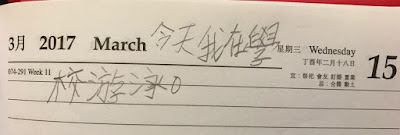 3月 2017 March 今天我在學 星期三 Wednesday
丁酉年二月十八日
074-291 Week 11 宜：祭祀 會友 訂婚 置業
忌：合醬 動土
15
校游泳。